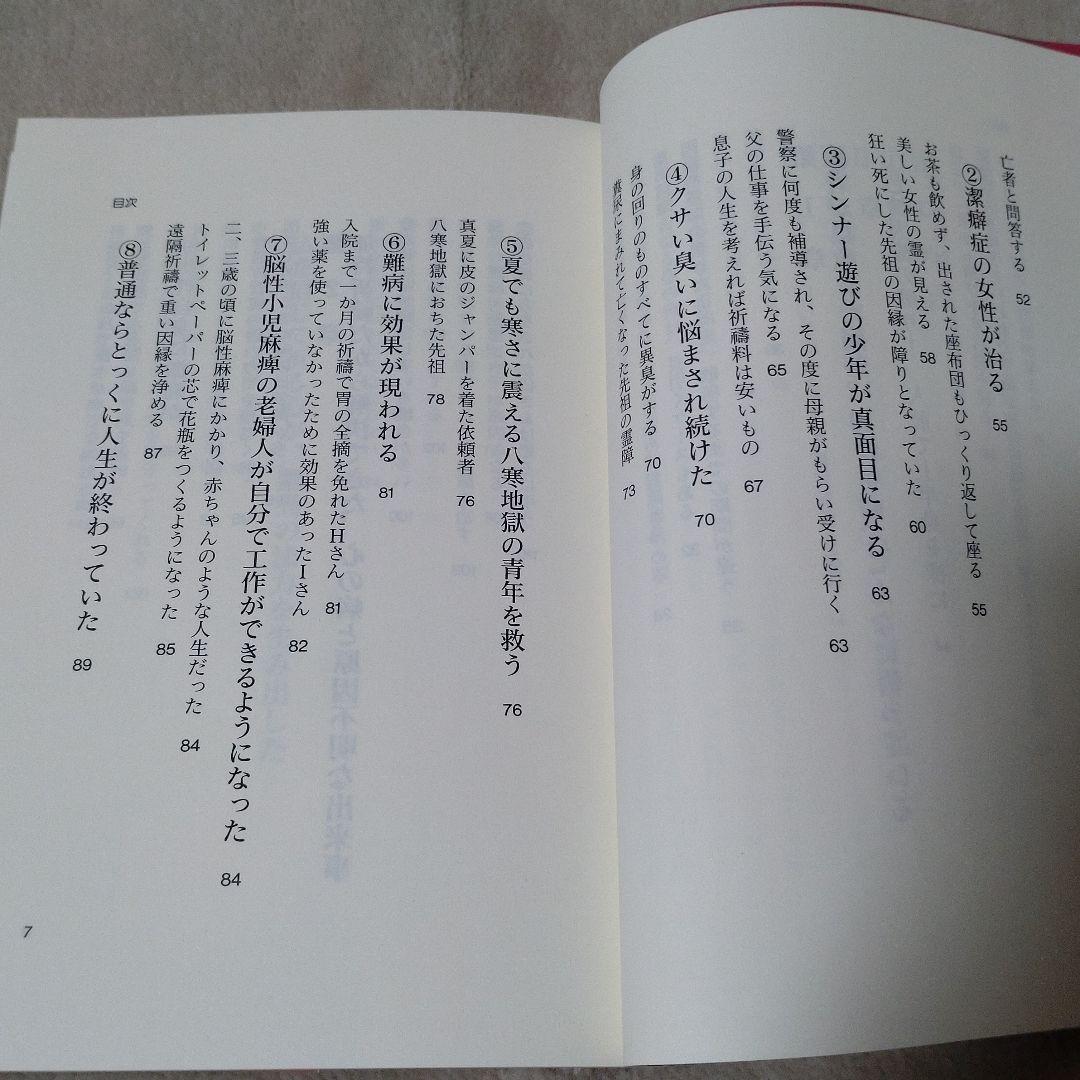 亡者と問答する 52
②潔癖症の女性が治る 55
お茶も飲めず、出された座布団もひっくり返して座る 55
美しい女性の霊が見える 58
狂い死にした先祖の因縁が障りとなっていた 60
③シンナー遊びの少年が真面目になる 63
警察に何度も補導され、その度に母親がもらい受けに行く 63
父の仕事を手伝う気になる 65
息子の人生を考えれば祈禱料は安いもの 67
④クサい臭いに悩まされ続けた 70
身の回りのものすべてに異臭がする 70
糞尿にまみれて亡くなった先祖の霊障 73
⑤夏でも寒さに震える八寒地獄の青年を救う 76
真夏に皮のジャンパーを着た依頼者 76
八寒地獄におちた先祖 78
⑥難病に効果が現われる 81
入院まで一か月の祈禱で胃の全摘を免れたHさん 81
強い薬を使っていなかったために効果のあったIさん 82
⑦脳性小児麻痺の老婦人が自分で工作ができるようになった 84
二、三歳の頃に脳性麻痺にかかり、赤ちゃんのような人生だった 84
トイレットペーパーの芯で花瓶をつくるようになった 85
遠隔祈禱で重い因縁を浄める 87
⑧普通ならとっくに人生が終わっていた 89
目次
7